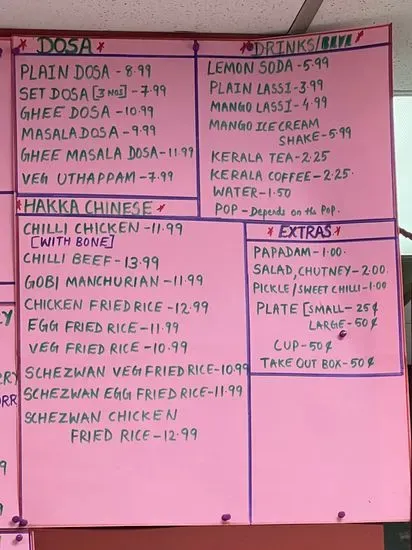 * DOSA *
PLAIN DOSA - 8.99
SET DOSA [3 NO] - 7.99
GHEE DOSA - 10.99
MASALA DOSA - 9.99
GHEE MASALA DOSA - 11.99
VEG UTHAPPAM - 7.99
* HAKKA CHINESE *
CHILLI CHICKEN - 11.99
[WITH BONE]
CHILLI BEEF - 13.99
GOBI MANCHURIAN - 11.99
CHICKEN FRIED RICE - 12.99
EGG FRIED RICE - 11.99
VEG FRIED RICE - 10.99
SCHEZWAN VEG FRIED RICE - 10.99
SCHEZWAN EGG FRIED RICE - 11.99
SCHZWAN CHICKEN
FRIED RICE - 12.99
* DRINKS/
LEMON SODA - 5.99
PLAIN LASSI - 3.99
MANGO LASSI - 4.99
MANGO ICE CREAM
SHAKE - 5.99
KERALA TEA - 2.25
KERALA COFFEE - 2.25.
WATER - 1.50
POP - Depends on the Pop.
* EXTRAS *
PAPADAM - 1.00.
SALAD, CHUTNEY - 2.00.
PICKLE/SWEET CHILLI - 1.00
PLATE [SMALL - 25¢
LARGE - 50¢
CUP - 50¢
TAKE OUT BOX - 50¢